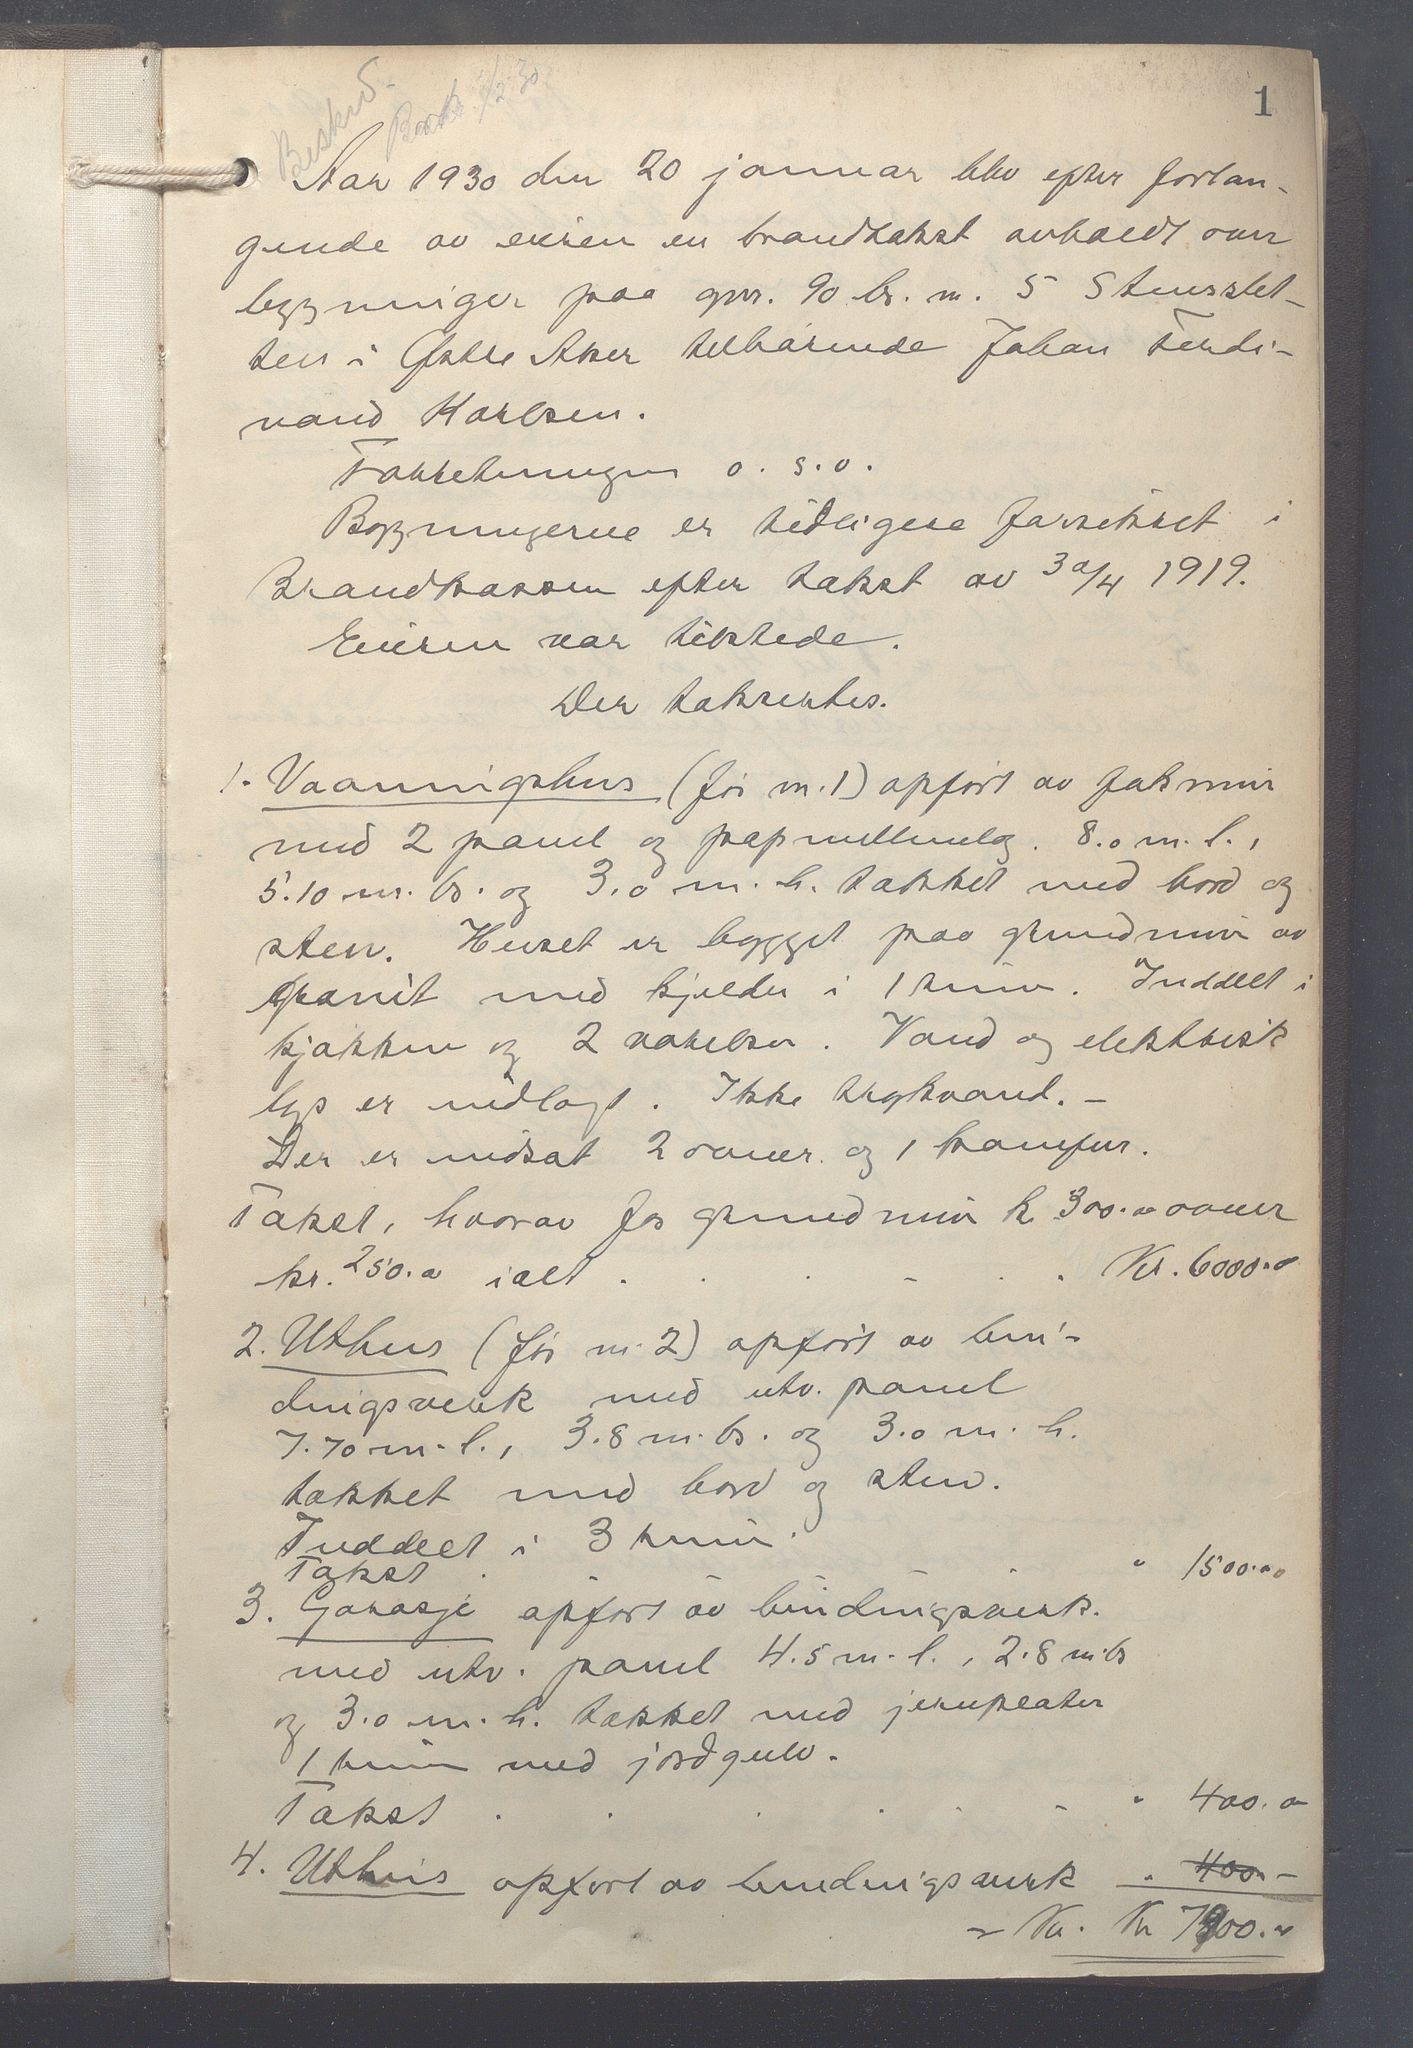 1
Beskrd.
Aar 1930 den 20 januar blev efter forlan-
gende av eieren en brandtakst avholdt over
bygninger paa gnr. 90 br. nr. 5 Stensslet-
ten i Østre Aker tilhørende Johan Ferdi-
nand Karlsen.
Forretningen o. s. v.
Bygningerne er tidligere forsikret i
Brandkassen efter takst av 30/4 1919.
Eieren var tilstede.
Der taksertes.
1. Vaaningshus (før nr. 1) opført av
med 2 panel og papmellemlag. 8.0 m. l.,
5.10 m. br. og 3.0 m. h. tækket med bord og
sten. Huset er bygget paa grundmur av
granit med kjelder i 1 rum. Inddelt i
kjøkken og 2 værelser. Vand og elektrisk
lys er indlagt. Ikke trykvand. -
Der er indsat 2 ovner og 1 komfur.
Takst, hvorav for grundmur kr 300.00 ovner
kr. 250.00 ialt . . . . . . Kr. 6000.00
2. Uthus (før nr. 2) opført av bin-
dingsverk med utv. panel
7.70 m. l., 3.8 m. br. og 3.0 m. h.
tækket med bord og sten.
Inddelt i 3 rum.
Takst . . . " 1500.00
3. Garasje opført av bindingsverk.
med utv. panel 4.5 m. l., 2.8 m br
og 3.0 m. h. tækket med jernplater
1 rum med jordgulv.
Takst . . . . . . " 400.00
4. Uthus opført av bindingsverk " 400 -
Kr. Kr 7900.00